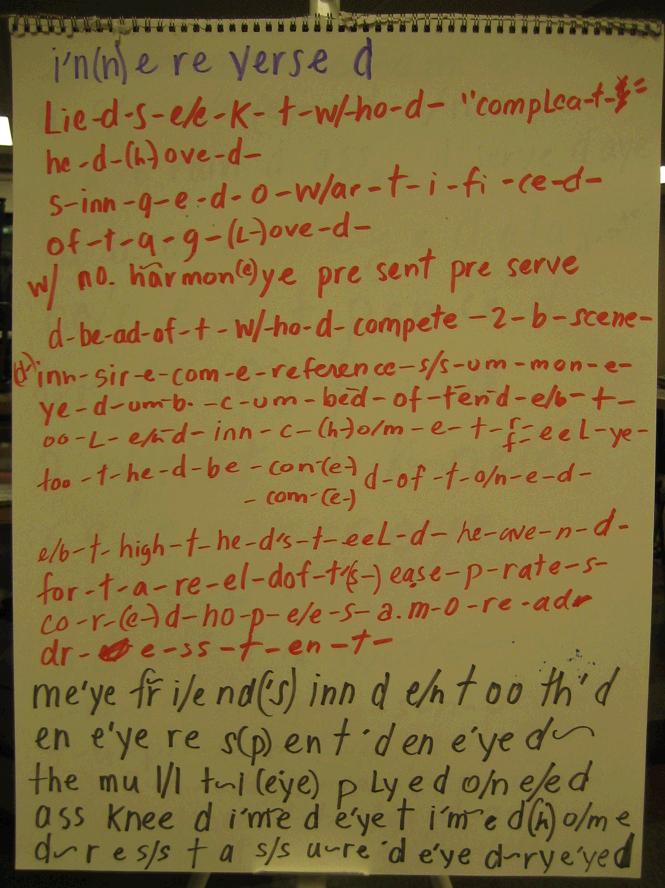 i'n(n)e re verse d
Lie-d-s-e/e-K-t-w/-ho-d- "compLea-t-
he-d-(h)ove-d-
s-inn-g-e-d-o-w/ar-t-i-fi-ce-d-
of-t-a-g-(L-)ove-d-
w/ no. harmon(e)ye pre sent pre serve
d-be-ad-of-t-w/ho-d-compete-2-b-scene-
(d-)inn-sir-e-com-e-reference-s/s-um-mon-e-
ye-d-umb--c-um-bed-of-tend-e/b-t-
oo-L-e/n-d-inn-c-(h-)o/m-e-t-f-eel-ye-
too-t-he-d-be-con-(e-) d-of-t-o/n-e-d-
-com-(e-)
e/b-t-high-t-he-d's-t-eeL-d-he-ave-n-d-
for-t-a-re-el-dof-t'(s-)ease-p-rate-s-
co-r-(e-)d-ho-p-e/e-s-a.m-o-re-adr
dr-e-ss-t-en-t-
me'ye fr i/e nd('s) inn d e/n t oo th'd
en e'ye re s(p) en t 'd en e'ye d~
the mu l/l t~i (eye) p Lye d o/n e/e d
ass knee d i'me d e'ye t i'm'e d(h) o/m e
d~r e s/s t a s/s u~re 'd e'ye d~rye'yed